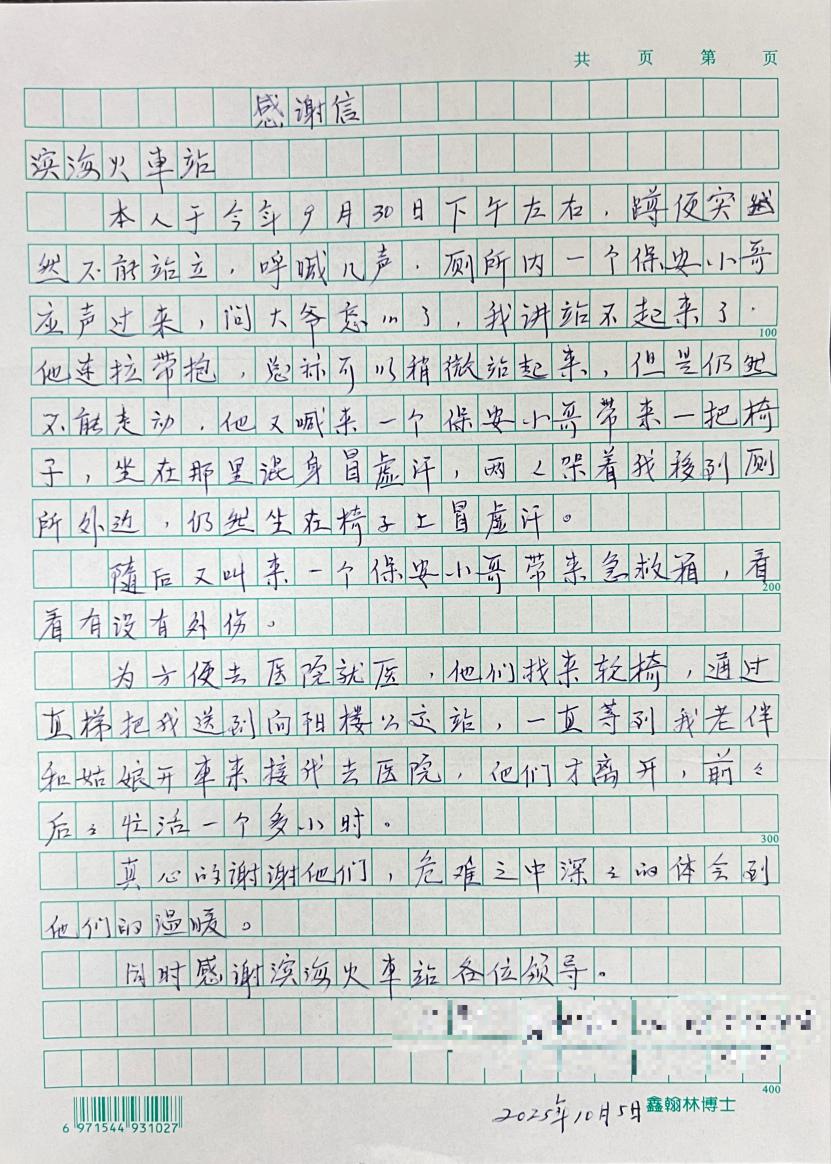 共 页 第 页
感谢信
滨海火車站
本人于今年9月30日下午左右，蹲便突然
然不能站立，呼喊几声．厕所内一个保安小哥
应声过来，问大爷怎么了，我讲站不起来了．
100
他连拉带抱，总称可以稍微站起来，但是仍然
不能走动．他又喊来一个保安小哥带来一把椅
子，坐在那里混身冒虚汗，两人架着我移到厕
所外边，仍然坐在椅子上冒虚汗。
随后又叫来一个保安小哥带来急救箱，看
200
看有没有外伤。
为方便去医院就医，他们找来软椅，通过
直梯把我送到向阳楼公交站，一直等到我老伴
和姑娘开車来接我去医院，他们才离开，前々
后々忙活一个多小时。
300
真心的谢谢他们，危难之中深々的体会到
他们的温暖。
同时感谢滨海火車站各位领导。
400
6 971544 931027
2025年10月5日
鑫翰林博士